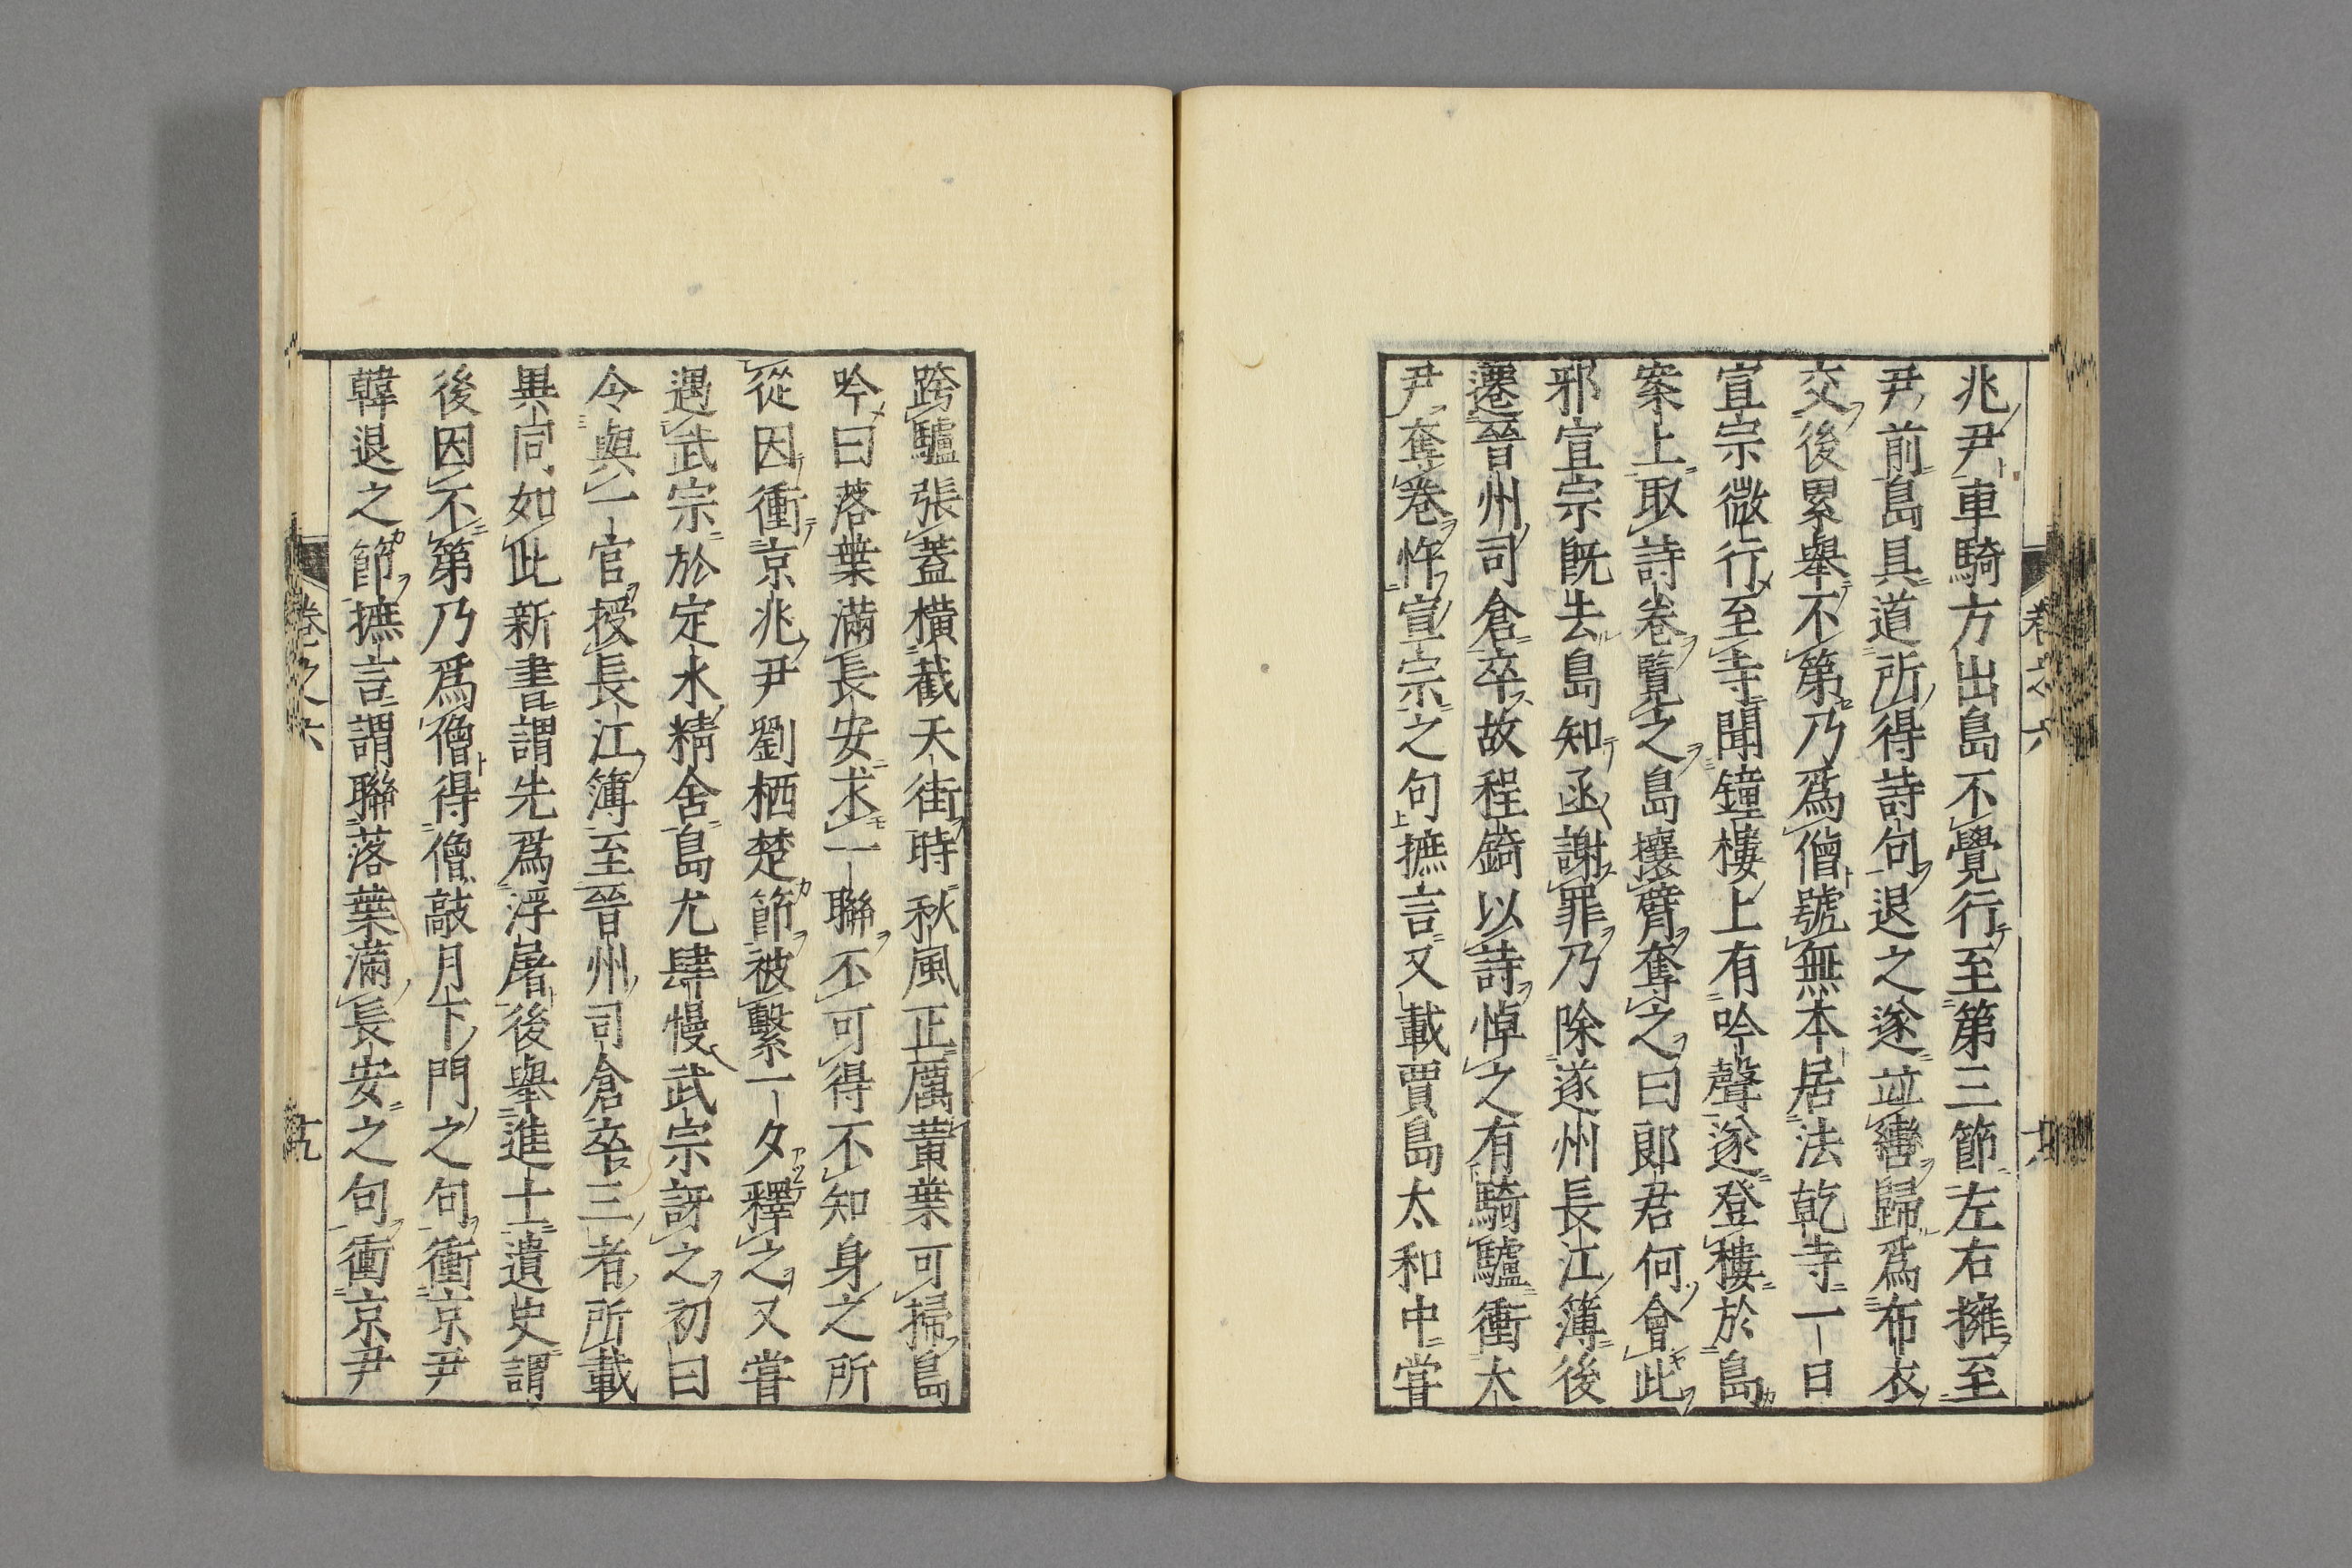 兆尹車騎方出島不覺行至第三節左右擁至
尹前島具道所得詩句退之遂並轡歸爲布衣
交後累舉不第乃爲僧號無本居法乾寺一日
宣宗微行至寺聞鐘樓上有吟聲遂登樓於島
案上取詩卷覽之島攘臂奪之曰郎君何會此
邪宣宗既去島知亟謝罪乃除遂州長江簿後
遷晉州司倉卒故程錡以詩悼之有騎驢衝大
尹奪卷忤宣宗之句摭言又載賈島太和中嘗
跨驢張蓋橫截天街時秋風正厲黄葉可掃島
吟曰落葉滿長安求一聯不可得不知身之所
從因衝京兆尹劉栖楚節被繫一夕釋之又嘗
遇武宗於定水精舍島尤肆慢武宗訝之初曰
令與一官授長江簿至晉州司倉卒三者所載
異同如此新書謂先爲浮屠後舉進士遺史謂
後因不第乃爲僧得僧敲月下門之句衝京尹
韓退之節摭言謂聯落葉滿長安之句衝京尹
卷之六